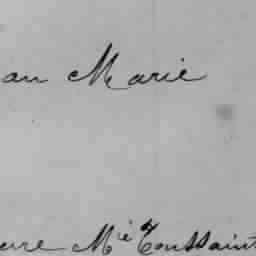 an Marie
erre Mie Toussaint